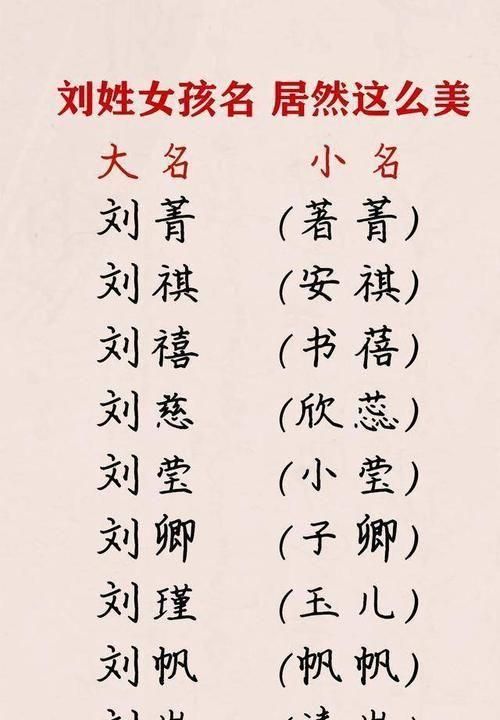 刘姓女孩名 居然这么美
大名 小名
刘菁 (著菁)
刘祺 (安祺)
刘禧 (书蓓)
刘慈 (欣蕊)
刘莹 (小莹)
刘卿 (子卿)
刘瑾 (玉儿)
刘帆 (帆帆)